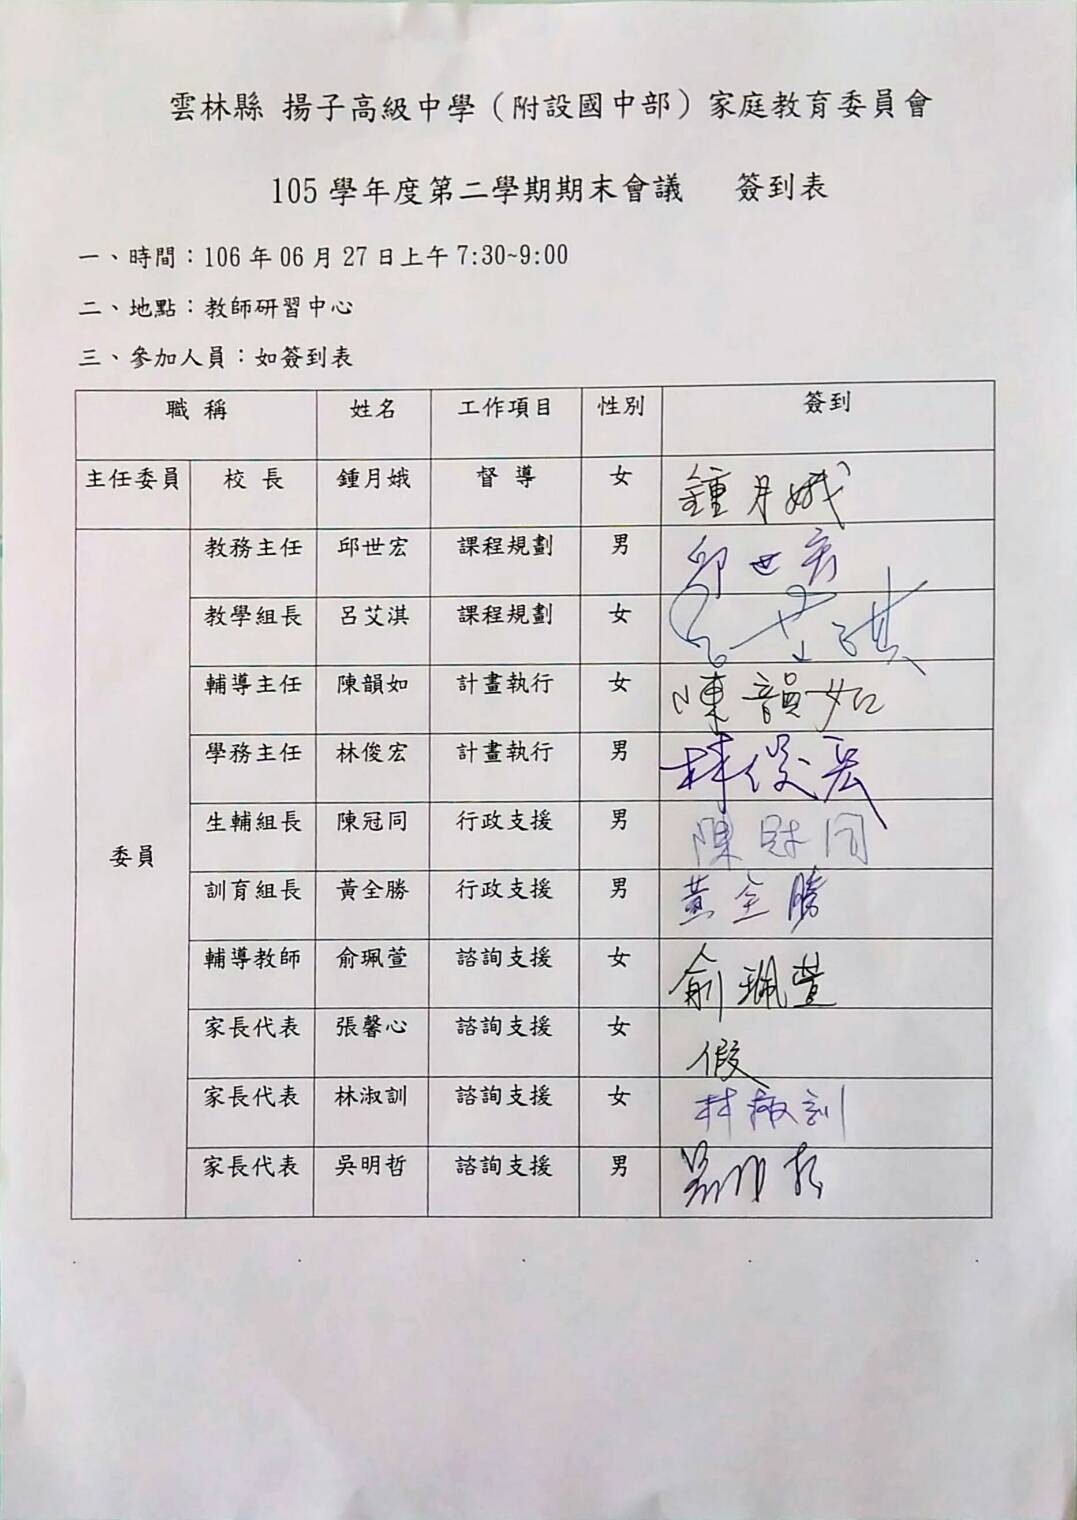 雲林縣 揚子高級中學（附設國中部）家庭教育委員會
105 學年度第二學期期末會議 簽到表
一、時間：106 年 06 月 27 日上午 7:30~9:00
二、地點：教師研習中心
三、參加人員：如簽到表
職 稱 姓名 工作項目 性別 簽到
主任委員 校 長 鍾月娥 督 導 女 鍾月娥
教務主任 邱世宏 課程規劃 男 邱世宏
教學組長 呂艾淇 課程規劃 女 呂艾淇
輔導主任 陳韻如 計畫執行 女 陳韻如
學務主任 林俊宏 計畫執行 男 林俊宏
生輔組長 陳冠同 行政支援 男 陳冠同
委員
訓育組長 黃全勝 行政支援 男 黃全勝
輔導教師 俞珮萱 諮詢支援 女 俞珮萱
家長代表 張馨心 諮詢支援 女 假
家長代表 林淑訓 諮詢支援 女 林淑訓
家長代表 吳明哲 諮詢支援 男 吳明哲